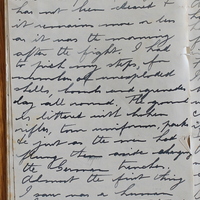 has not been cleared &
it remains more or less
as it was the morning
after the fight. I had
to pick my steps, for
numbers of unexploded
shells, bombs and grenades
lay all round. The ground
is littered with broken
rifles, torn uniforms, packs
&c just as the men had
flung them aside charging
the German trenches.
Almost the first thing
I saw was a human